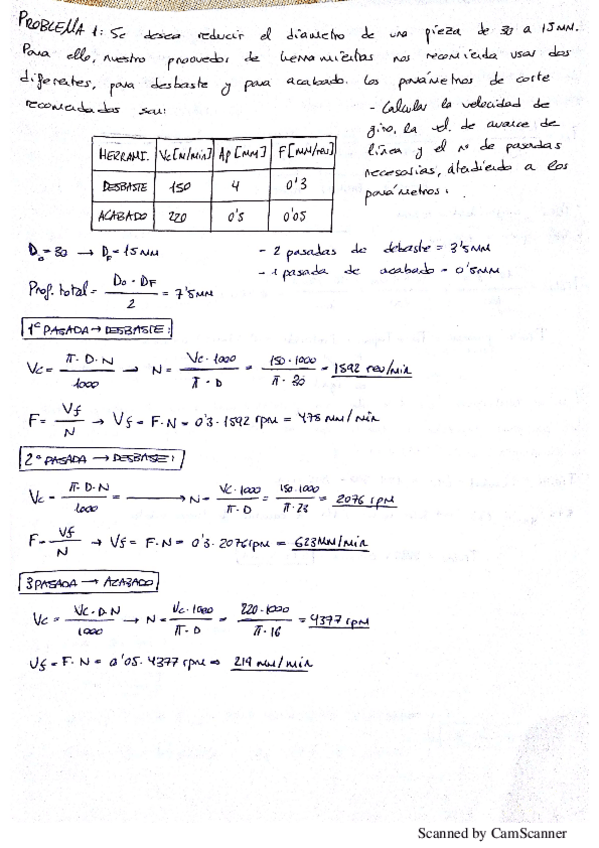 PROBLEMA 1: Se desea reducir el diametro de una pieza de 30 a 15 MM.
Para ello, nuestro proovedor de herramientas nos recomienda usar dos
diferentes, para desbaste y para acabado. Los parámetros de corte
recomendados son:
- Calcular la velocidad de
giro, la vel. de avance de
línea y el nº de pasadas
necesarias, atendiendo a los
parámetros.
HERRAMI. Vc[M/min] Ap[MM] F[MM/rev]
DESBASTE 150 4 0'3
ACABADO 220 0'5 0'05
D₀ = 30 → D_F = 15 MM
- 2 pasadas de debaste = 3'5MM
- 1 pasada de acabado = 0'5MM
Prof. total = (D₀ - D_F)/2 = 7'5MM
1ª PASADA → DESBASTE:
Vc = (π · D · N)/1000 → N = (Vc · 1000)/(π · D) = (150 · 1000)/(π · 30) = 1592 rev/min
F = Vf/N → Vf = F · N = 0'3 · 1592 rpm = 478 mm/min
2ª PASADA → DESBASTE:
Vc = (π · D · N)/1000 = → N = (Vc · 1000)/(π · D) = (150 · 1000)/(π · 23) = 2076 rpm
F = Vf/N → Vf = F · N = 0'3 · 2076 rpm = 623 MM/min
3 PASADA → ACABADO
Vc = (Vc · D · N)/1000 → N = (Vc · 1000)/(π · D) = (220 · 1000)/(π · 16) = 4377 rpm
Vf = F · N = 0'05 · 4377 rpm ⇒ 219 mm/min
Scanned by CamScanner